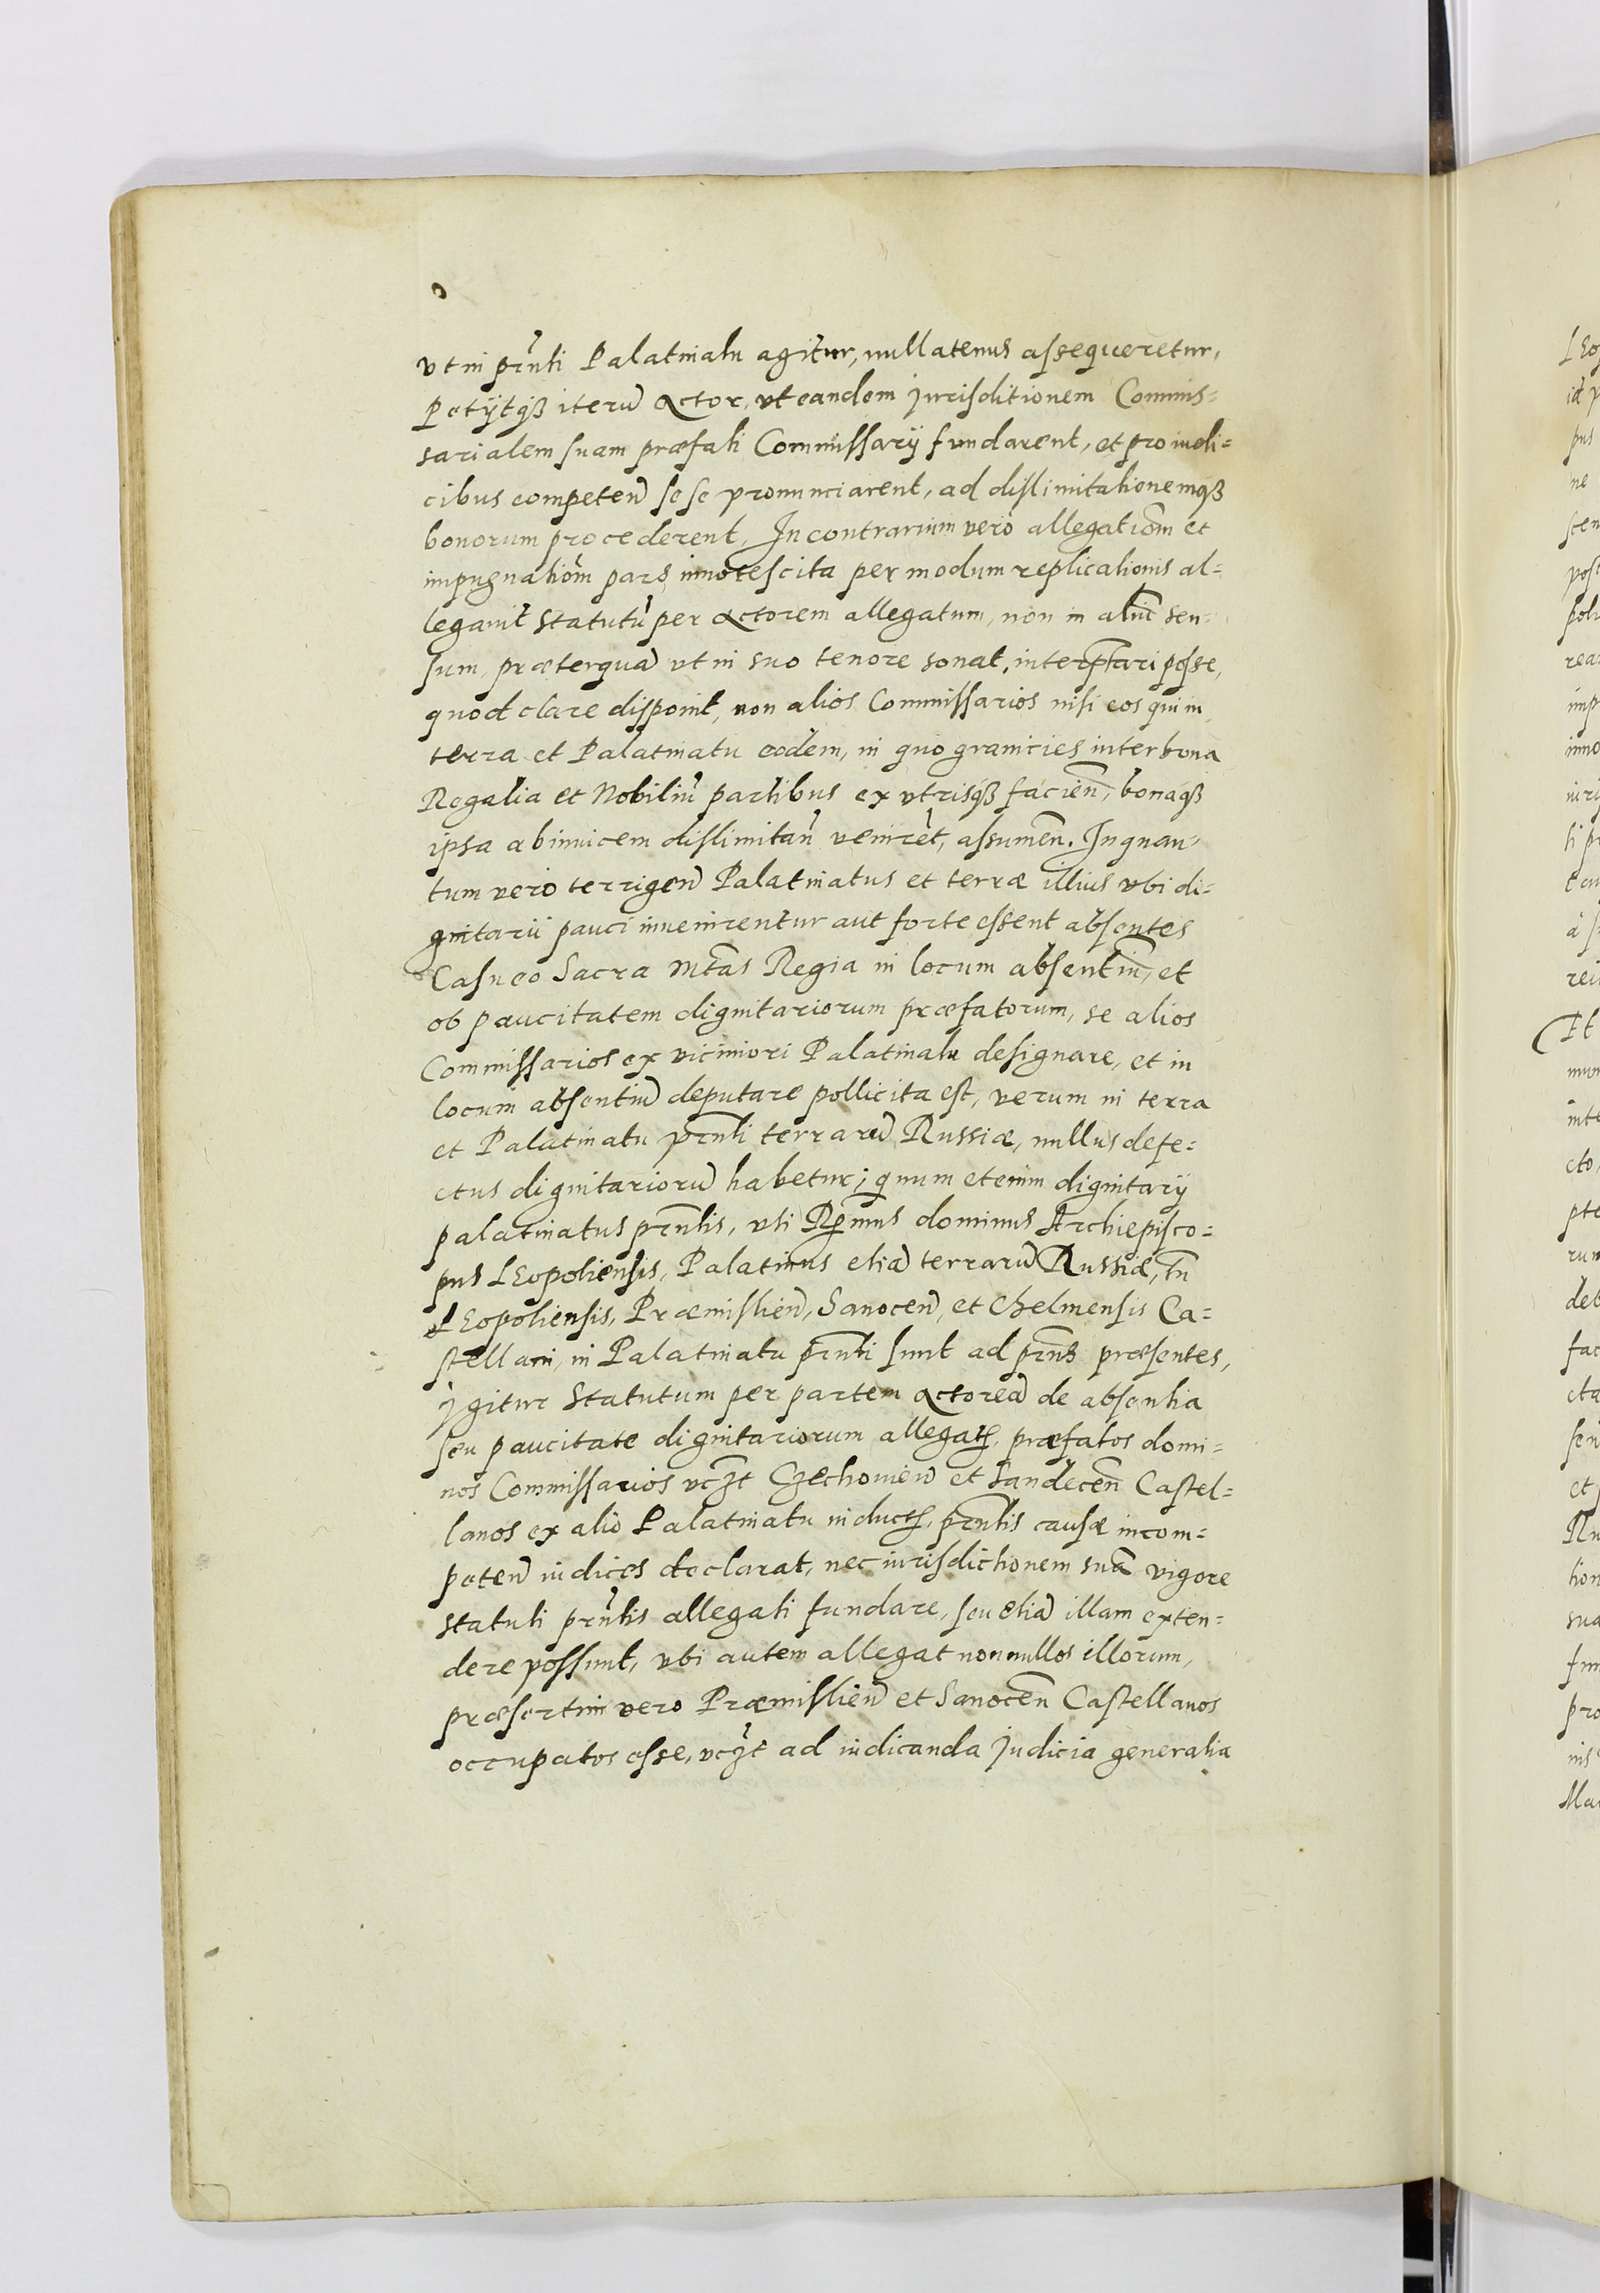 vt in pñti Palatinatu agitur, nullatenus assequeretur,
Petijtqß iterũ Actor, vt eandem jurisditionem Commis=
sarialem suam præfati Commissarij fundarent, et pro iudi=
cibus competeñ sese pronunciarent, ad dislimitationemqß
bonorum procederent. In contrarium vero allegationẽ et
impugnationẽ pars innotescita per modum replicationis al=
legavit statutũ per Actorem allegatum, non in aliũ sen=
sum, præterquã vt in suo tenore sonat, interptari posse,
quod clare disponit, non alios Commissarios nisi eos qui in
terra et Palatinatu eodem, in quo granicies inter bona
Regalia et Nobiliũ partibus ex vtrisqß facieñ, bonaqß
ipsa abinuicem dislimitañ venirẽt, assumeñ. In quan=
tum vero terrigeñ Palatinatus et terræ illius vbi di=
gnitarii pauci inuenirentur aut forte essent absentes
Casu eo Sacra Mtãs Regia in locum absentiũ, et
ob paucitatem dignitariorum præfatorum, se alios
Commissarios ex viciniori Palatinatu designare, et in
locum absentiũ deputare pollicita est, verum in terra
et Palatinatu pñti terrarũ Russiæ, nullus defe=
ctus dignitariorũ habetur; quum etenim dignitarij
palatinatus pñtis, vti Rẽmus dominus Archiepisco=
pus LEopoliensis, Palatinus etiã terrarũ Russiæ, tũ
LEopoliensis, Præmislieñ, Sanoceñ, et Chelmensis Ca=
stellani, in Palatinatu pñti sunt ad pñs præsentes,
jgitur Statutum per partem Actoreã de absentia
seu paucitate dignitariorum allegatʒ, præfatos domi=
nos Commissarios vcʒt Czechovieñ et Sandeceñ Castel=
lanos ex alio Palatinatu inductʒ, pñtis causæ incom=
peteñ iudices declarat, nec iurisdictionem suã vigore
statuti pñtis allegati fundare, seu etiã illam exten=
dere possunt, vbi autem allegat nonnullos illorum,
præsertim vero Præmislieñ et Sanoceñ Castellanos
occupatos esse, vcʒt ad iudicanda judicia generalia